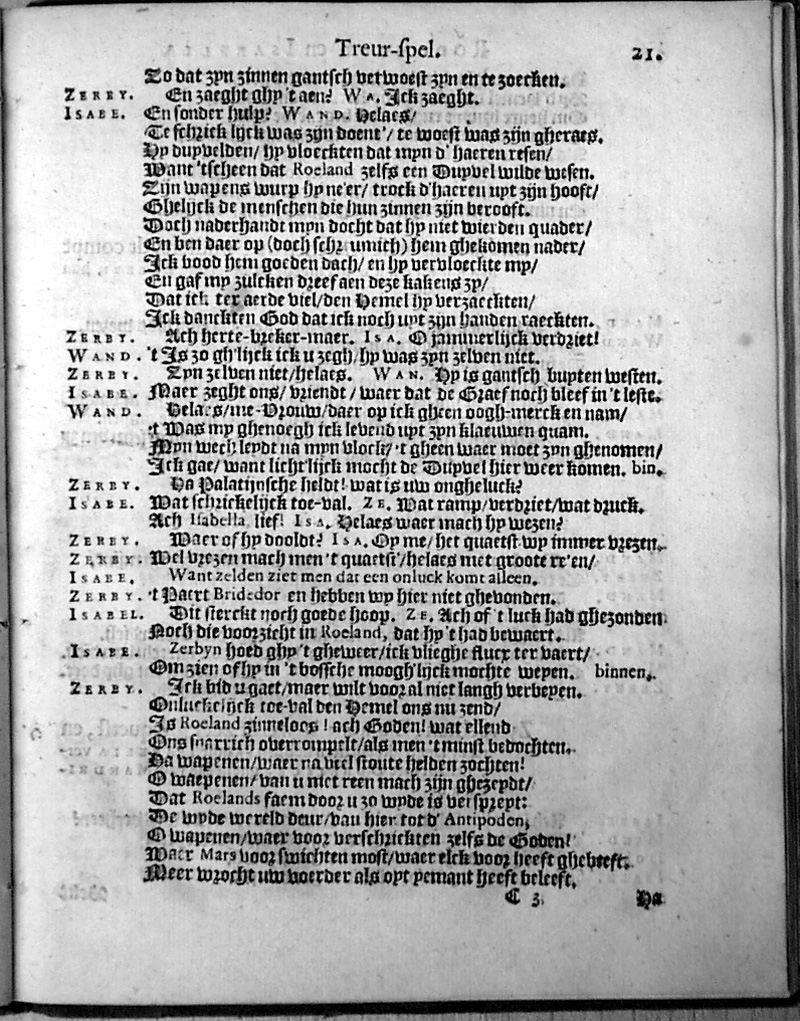 Treur-spel. 21.
Zo dat zyn zinnen gantsch verwoest zyn en te zoecken.
ZERBY. En zaeght ghy 't aen? WA. Ick zaeght.
ISABE. En sonder hulp? WAND. Helaes/
Te schrick lijck was zijn doent'/ te woest was zijn gheraes.
Hy duyvelden/ hy vloeckten dat myn d' haeren resen/
Want 'tscheen dat Roeland zelfs een Duyvel wilde wesen.
Zijn wapens wurp hy ne'er/ trock d'haeren uyt zijn hooft/
Ghelijck de menschen die hun zinnen zijn berooft.
Doch naderhandt myn docht dat hy niet wierden quader/
En ben daer op (doch schr umich) hem ghekomen nader/
Ick bood hem goeden dach/ en hy vervloeckte my/
En gaf my zulcken dreef aen deze kakens zy/
Dat ick ter aerde viel/den Hemel hy verzaeckten/
Ick danckten God dat ick noch uyt zijn handen raeckten.
ZERBY. Ach herte-breker-maer. ISA. O jammerlijck verdriet!
WAND. 't Is zo gh'lijck ick u zegh/hy was zyn zelven niet.
ZERBY. Zyn zelven niet/helaes. WAN. Hy is gantsch buyten westen.
ISABE. Maer zeght ons/ vriendt/ waer dat de Graef noch bleef in 't leste.
WAND. Helaes/me-Vrouw/daer op ick gheen oogh-merck en nam/
't Was my ghenoegh ick levend uyt zyn klaeuwen quam.
Myn wech leydt na myn vlock/ 't gheen waer moet zyn ghenomen/
Ick gae/ want licht'lijck mocht de Duyvel hier weer komen. bin.
ZERBY. Ha Palatijnsche heldt! wat is uw ongheluck?
ISABE. Wat schrickelijck toe-val. ZE. Wat ramp/verdriet/wat druck.
Ach Isabella lief! ISA. Helaes waer mach hy wezen?
ZERBY. Waer of hy dooldt? ISA. Oy me/ het quaetst wy immer vrezen.
ZERBY. Wel vrezen mach men 't quaetst'/helaes met groote re'en/
ISABE. Want zelden ziet men dat een onluck komt alleen.
ZERBY. 't Paert Bridedor en hebben wy hier niet ghevonden.
ISABEL. Dit sterckt noch goede hoop. ZE. Ach of 't luck had ghezonden
Noch die voorzicht in Roeland, dat hy 't had bewaert.
ISABE. Zerbyn hoed ghy 't gheweer/ick vlieghe flucx ter vaert/
Om zien of hy in 't bossche moogh'lijck mochte weyen. binnen.
ZERBY. Ick bid u gaet/maer wilt voor al niet langh verbeyen.
Onluckelijck toe-val den Hemel ons nu zend/
Is Roeland zinneloos! ach Goden! wat ellend
Ons snarrich overrompelt/als men 't minst bedochten.
Ha wapenen/waer na veel stoute helden zochten!
O waepenen/ van u met reen mach zijn ghezeydt/
Dat Roelands faem door u zo wyde is verspreyt:
De wyde wereld deur/van hier tot d' Antipoden,
O wapenen/waer voor verschrickten zelfs de Goden!
Waer Mars voor swichten most/waer elck voor heeft ghebeeft.
Meer wrocht uw voerder als oyt yemant heeft beleeft.
C 3. Ha